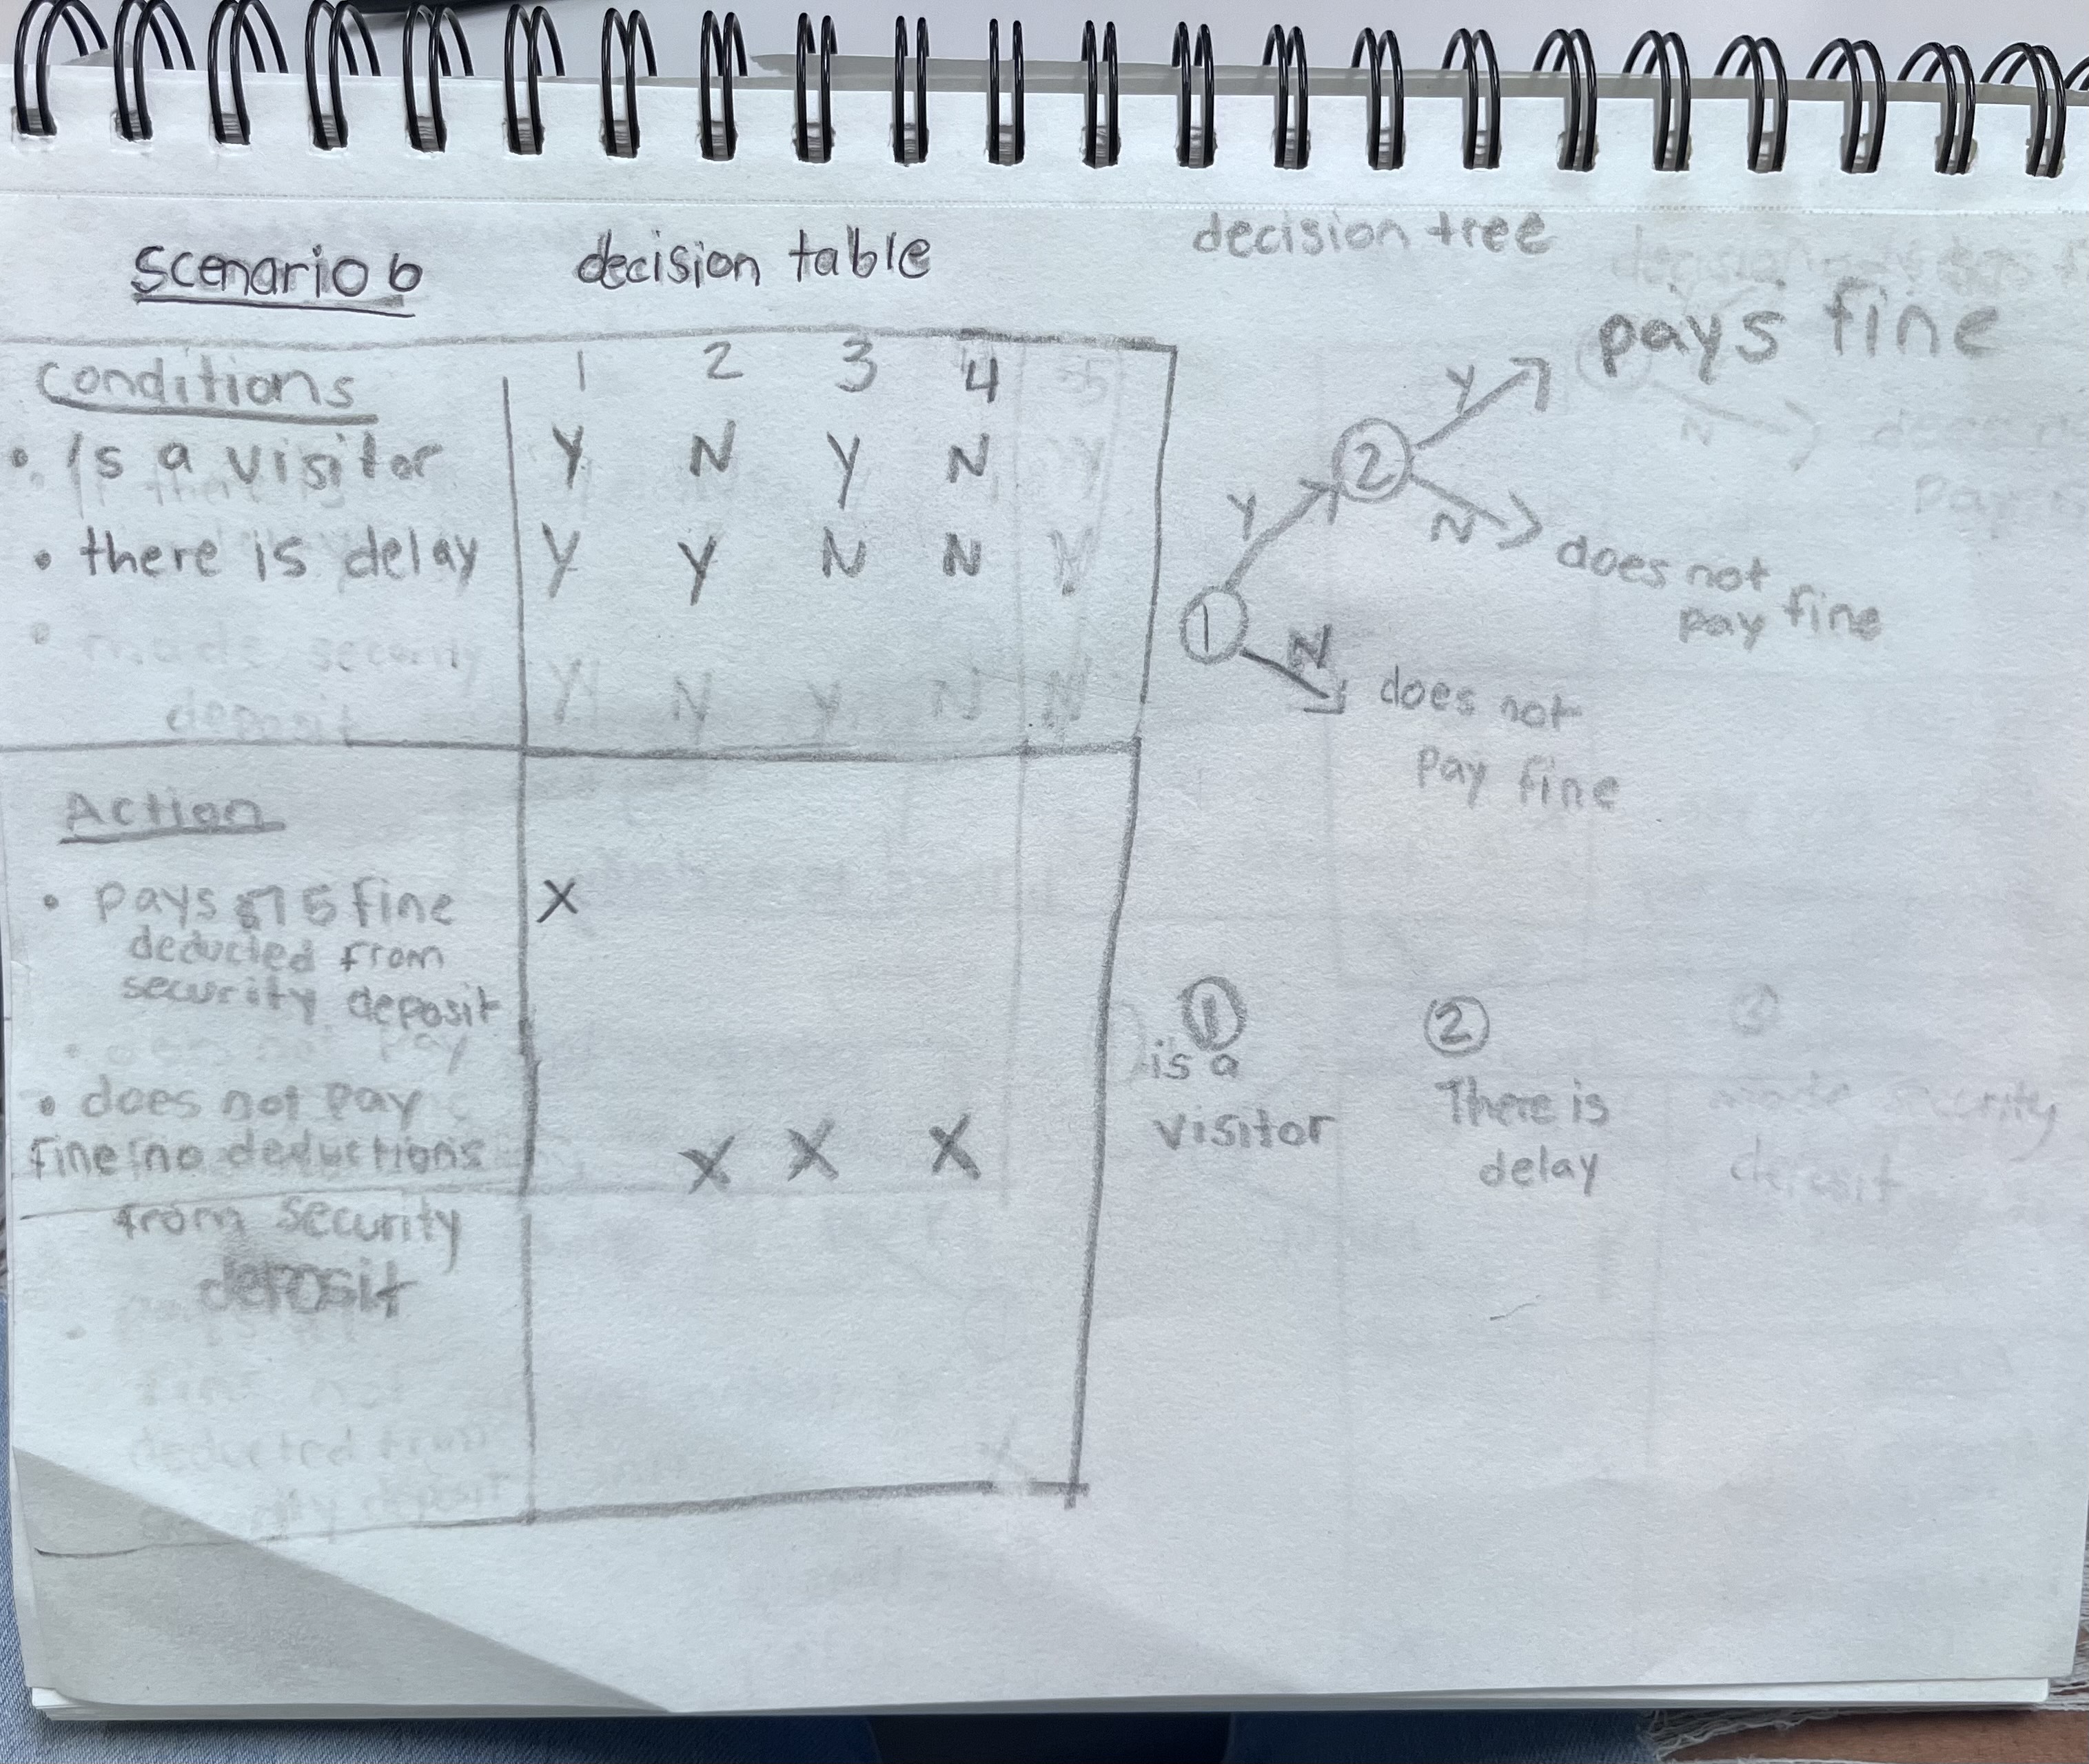 Scenario 6
decision table
Conditions 1 2 3 4
• Is a visitor Y N Y N
• there is delay Y Y N N
Action
• pays $75 fine X
deducted from
security deposit
• does not pay
fine no deductions X X X
from security
deposit
decision tree
pays fine
Y
2
Y
N
does not
pay fine
1
N
does not
pay fine
1
is a
visitor
2
There is
delay